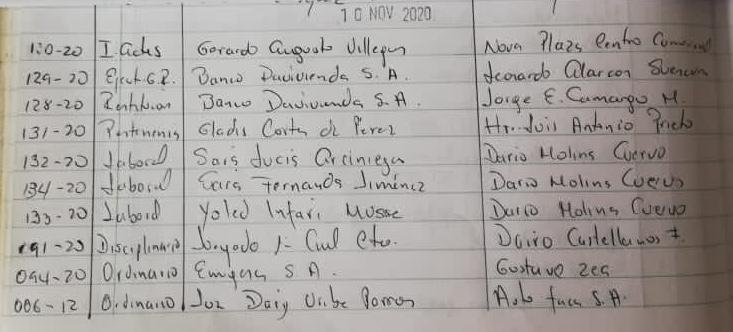 10 NOV 2020
130-20 I. Actes Gerardo Augusto Villegas Nova Plaza Centro Comercial
129-20 Ejecut G.R. Banco Davivienda S.A. Leonardo Alarcon
128-20 Restitucion Banco Davivienda S.A. Jorge E. Camargo M.
131-20 Pertenencia Gladis Cortes de Perez Hr. Luis Antonio Prieto
132-20 Laboral Luis Arciniega Dario Molina Cuervo
134-20 Laboral Fernanda Jiménez Dario Molina Cuervo
133-20 Laboral Musse Dario Molina Cuervo
091-20 Disciplinario Juzgado 1- Civil Cto. Dairo Castellanos
094-20 Ordinario S A. Gustavo Zea
006-12 Ordinario Luz Dary Uribe Auto S.A.